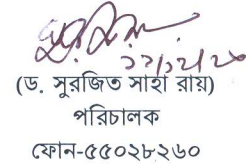 ২২/১২/২০
(ড. সুরজিত সাহা রায়)
পরিচালক
ফোন-৫৫০২৮২৬০